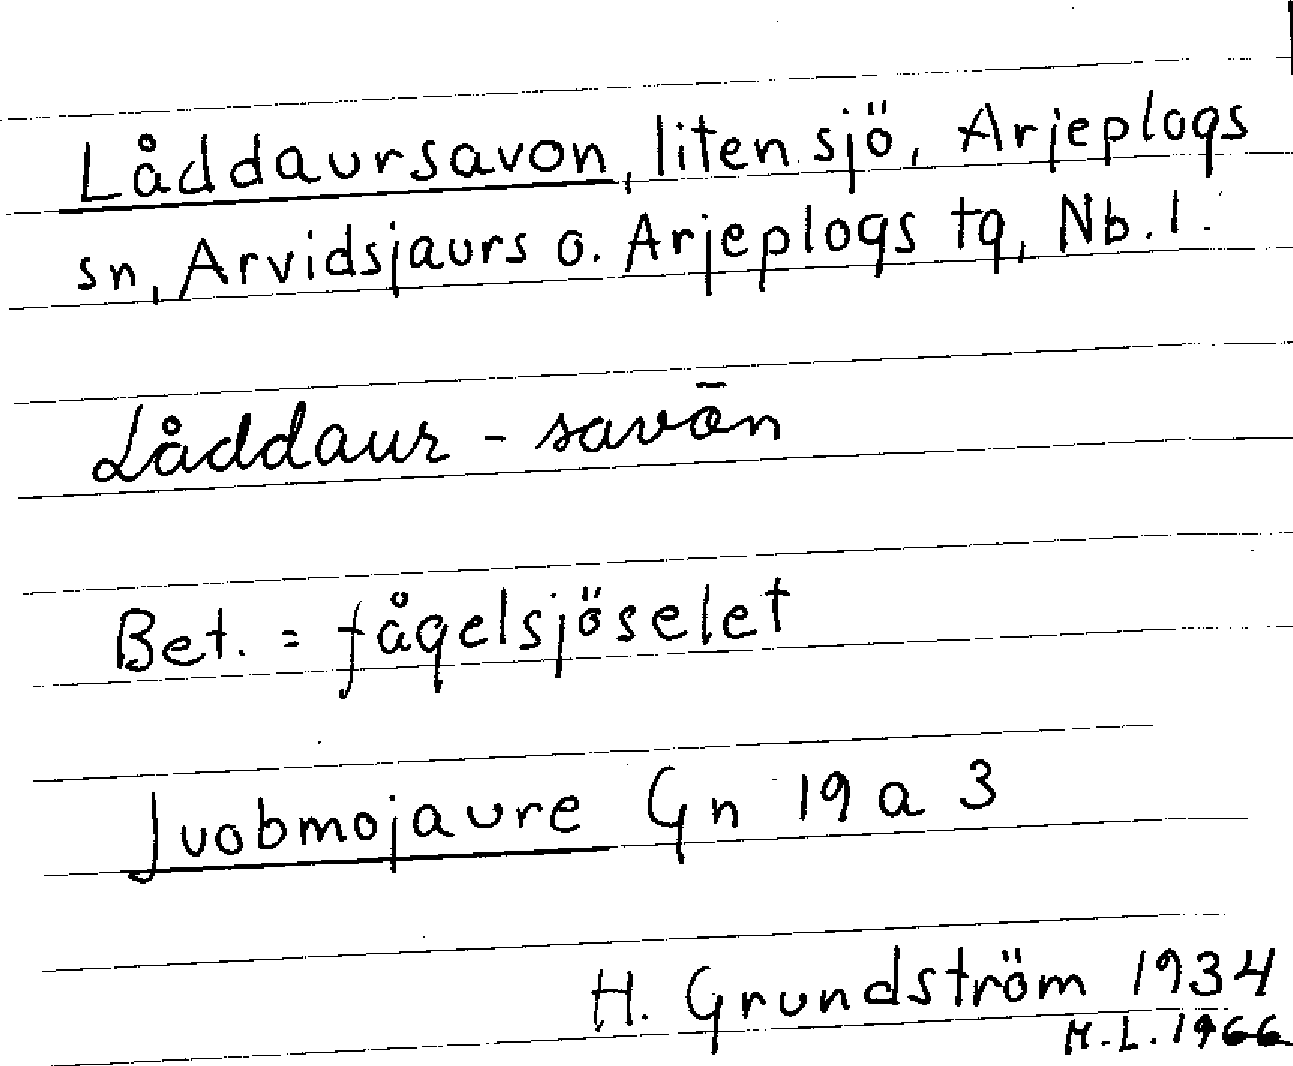 Låddaursavon, liten sjö, Arjeplogs
sn, Arvidsjaurs o. Arjeplogs tg, Nb. l.
Låddaur - savōn
Bet. = fågelsjöselet
Juobmojaure Gn 19 a 3
H. Grundström 1934
M.L. 1966